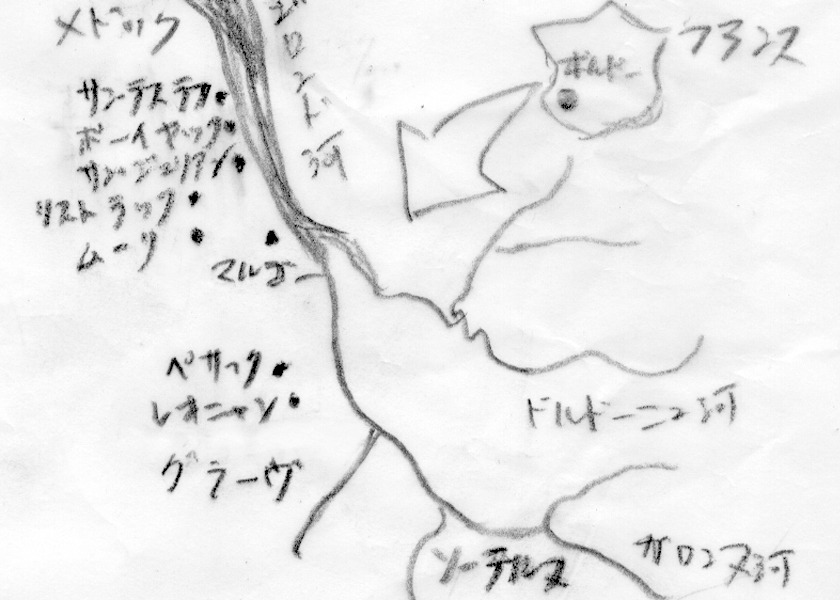 メドック
ジロンド河
フランス
ボルドー
サンテステフ
ポーイヤック
サンジュリアン
リストラック
ムーリ
マルゴー
ペサック
レオニャン
ドルドーニュ河
グラーヴ
ソーテルヌ
ガロンヌ河